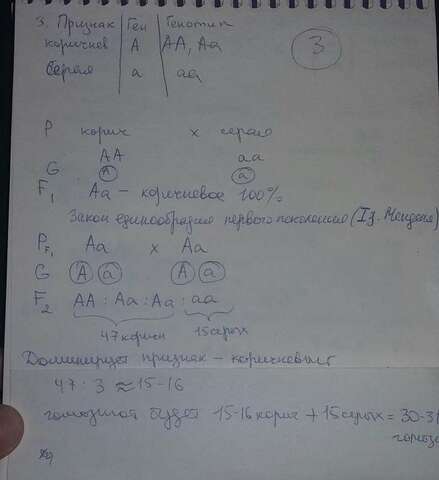 3. Признак | Ген | Генотип
коричнев | A | AA, Aa
серая | a | aa
3
P корич x серая
AA aa
G A a
F1 Aa – коричневое 100%
Закон единообразия первого поколения (I з. Менделя)
PF1 Aa x Aa
G A a A a
F2 AA : Aa : Aa : aa
47 корич 15 серых
Доминирует признак – коричневый
47 : 3 ≈ 15-16
гомозигот будет 15-16 корич + 15 серых = 30-31
гомоз